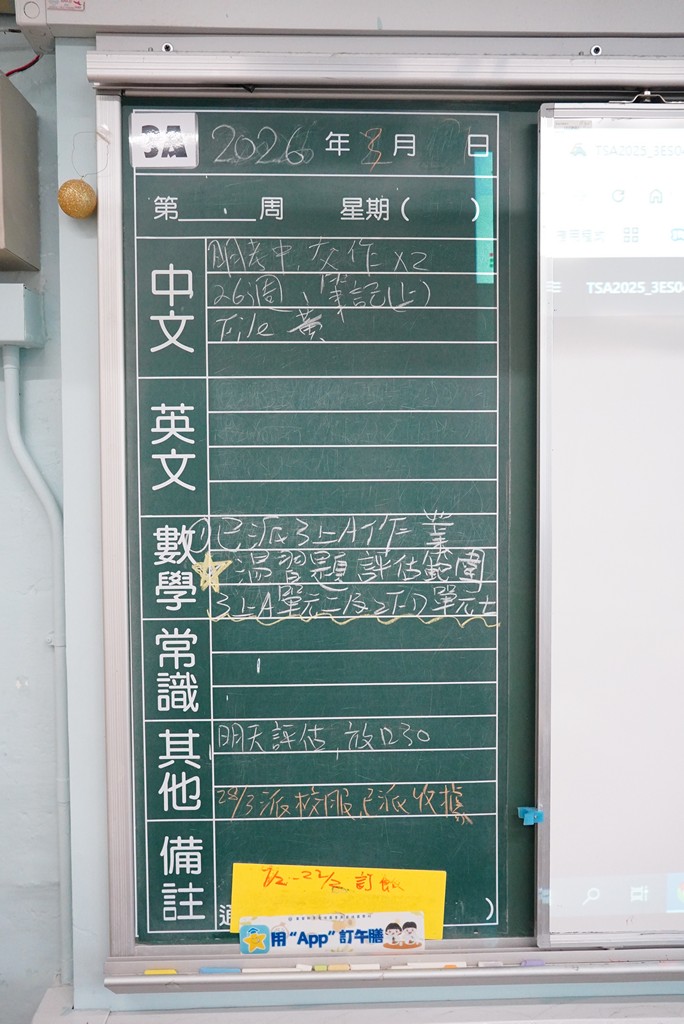 3A 2026 年 3 月 日
第 周 星期 ( )
中文
明考中, 交作 x2
26週、筆記(上)
File 黃
英文
數學
① 已派3上A作業
溫習題 評估範圍
3上A單元二及2下D單元七
常識
其他
明天評估, 放1230
28/3派校服, 已派收據
備註
訂飯
用“App”訂午膳
TSA2025_3ES0
TSA2025_3ES0